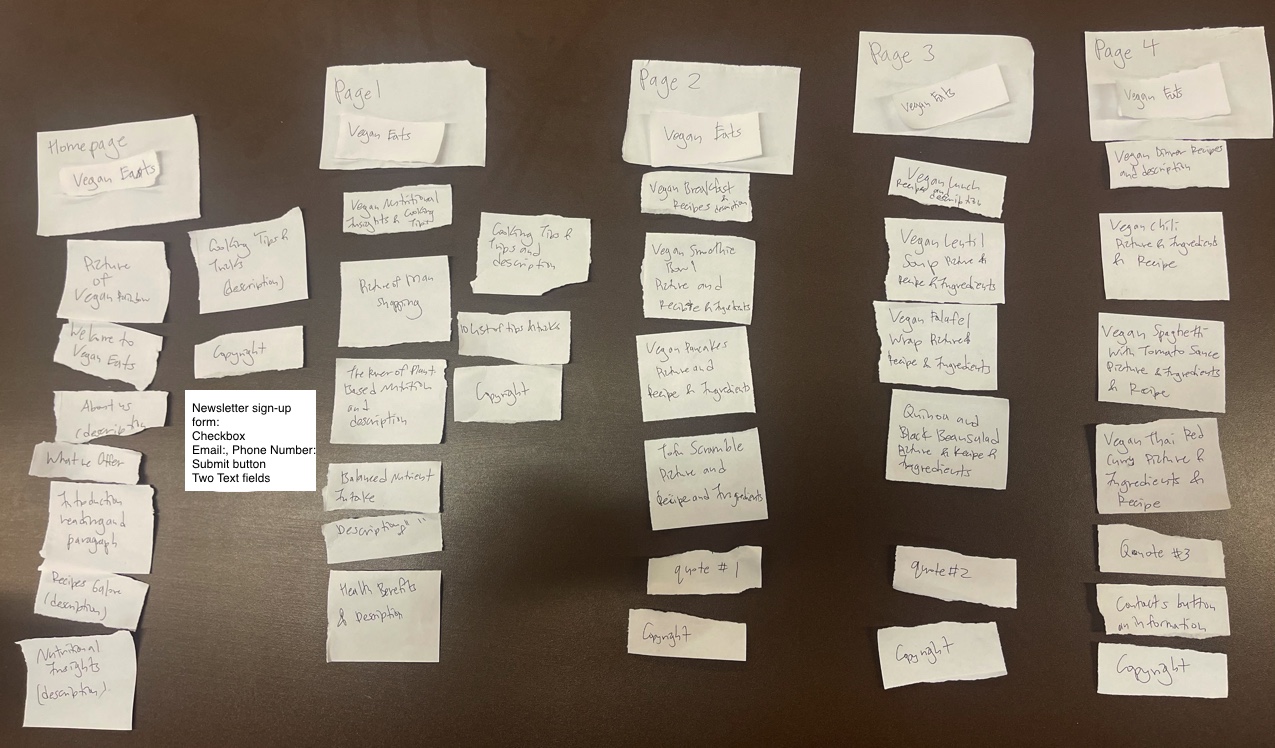 Homepage
Vegan Eats
Picture
of
Vegan
Welcome to
Vegan Eats
About us
(description
What we Offer
Introduction
heading and
paragraph
Recipes Galore
(description)
Nutritional
Insights
(description)
Cooking Tips &
Tricks
(description)
Copyright
Newsletter sign-up
form:
Checkbox
Email:, Phone Number:
Submit button
Two Text fields
Page 1
Vegan Eats
Vegan Nutritional
Insights & Cooking
Tips
Picture of Man
shopping
The Power of Plant
Based Nutrition
and
description
Balanced Nutrient
Intake
Description " "
Health Benefits
& Description
Cooking Tips &
Trips and
description
10 List of tips & tricks
Copyright
Page 2
Vegan Eats
Vegan Breakfast
Recipes & description
Vegan Smoothie
Bowl
Picture and
Recipe & Ingredients
Vegan Pancakes
Picture and
Recipe & Ingredients
Tofu Scramble
Picture and
Recipe and Ingredients
quote #1
Copyright
Page 3
Vegan Eats
Vegan Lunch
Recipes and description
Vegan Lentil
Soup Picture &
Recipe & Ingredients
Vegan Falafel
Wrap Picture &
Recipe & Ingredients
Quinoa and
Black Bean Salad
Picture & Recipe &
Ingredients
quote #2
Copyright
Page 4
Vegan Eats
Vegan Dinner Recipes
and description
Vegan Chili
Picture & Ingredients
& Recipe
Vegan Spaghetti
With Tomato Sauce
Picture & Ingredients
& Recipe
Vegan Thai Red
Curry Picture &
Ingredients &
Recipe
Quote #3
Contacts button
an information
Copyright